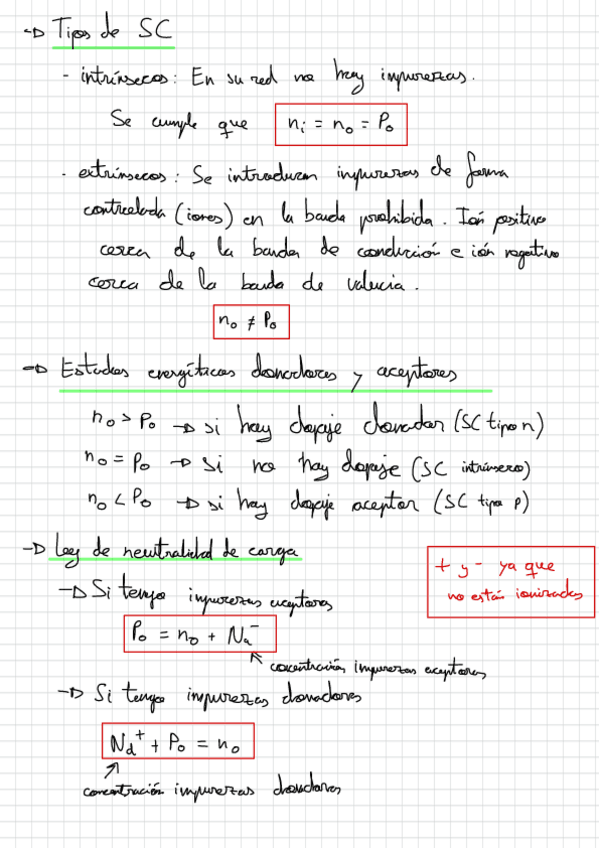 → Tipos de SC
- intrínsecos: En su red no hay impurezas.
Se cumple que n_i = n_o = P_o
- extrínsecos: Se introducen impurezas de forma
controlada (iones) en la banda prohibida. Ión positivo
cerca de la banda de conducción e ión negativo
cerca de la banda de valencia.
n_o ≠ P_o
→ Estados energéticos donadores y aceptores
n_o > P_o → si hay dopaje donador (SC tipo n)
n_o = P_o → si no hay dopaje (SC intrínseco)
n_o < P_o → si hay dopaje aceptor (SC tipo p)
→ Ley de neutralidad de carga
+ y - ya que
no están ionizadas
→ Si tengo impurezas aceptoras
P_o = n_o + N_a^-
concentración impurezas aceptoras
→ Si tengo impurezas donadores
N_d^+ + P_o = n_o
concentración impurezas donadoras